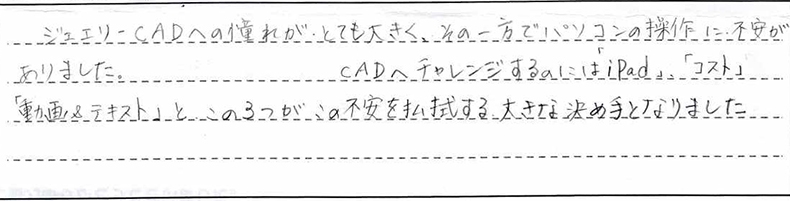 ジュエリーCADへの憧れが、とても大きく、その一方でパソコンの操作に不安が
ありました。 CADへチャレンジするのには「iPad」、「コスト」
「動画&テキスト」と、この3つがこの不安を払拭する大きな決め手となりました